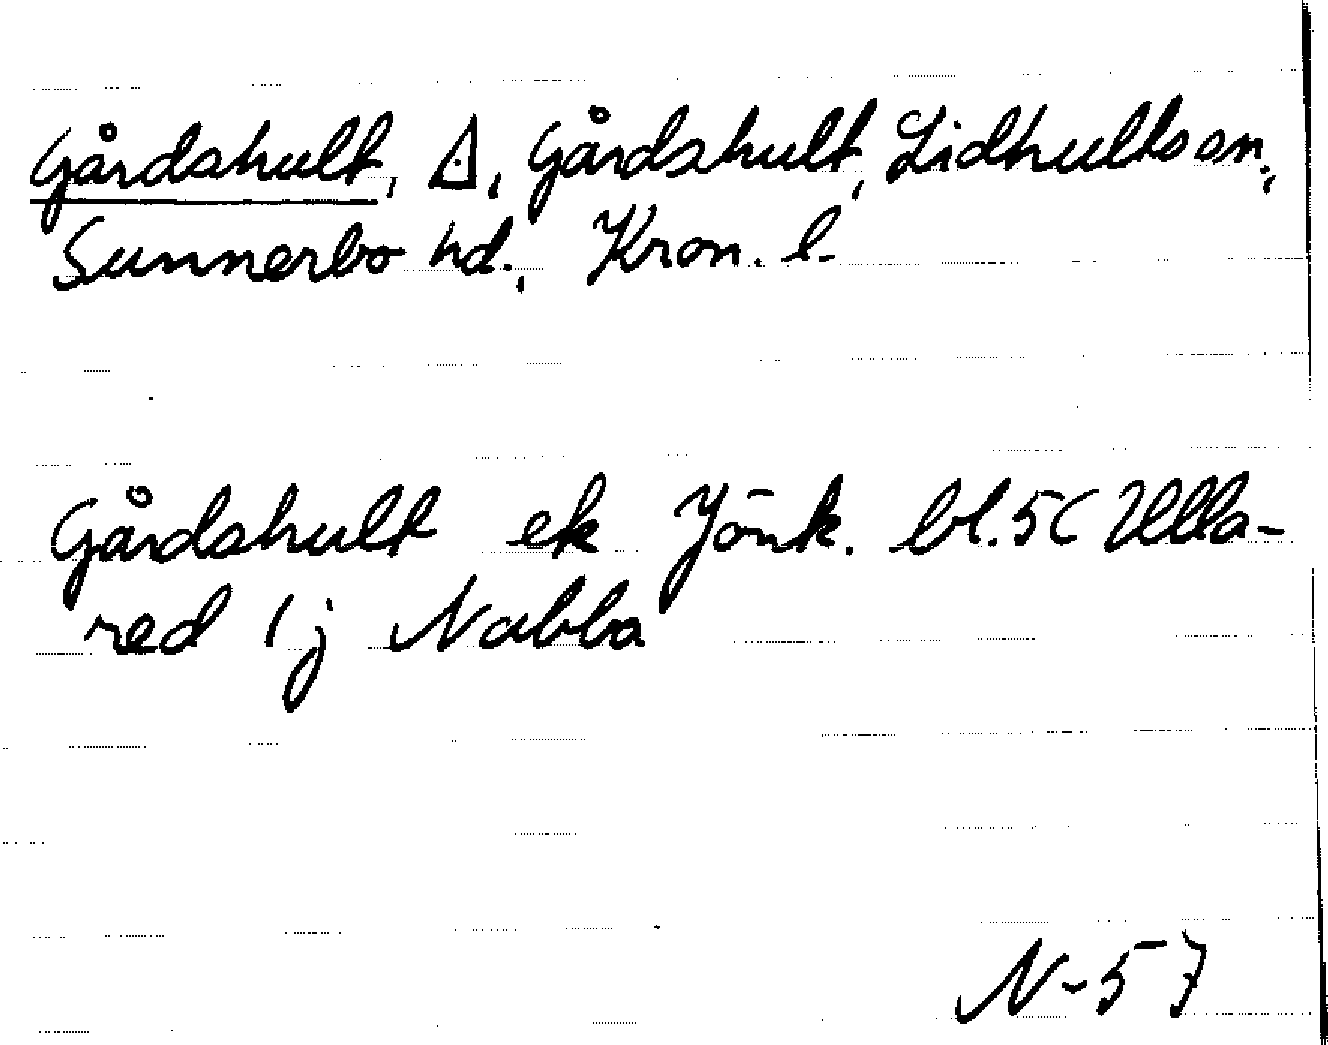 Gårdshult, ◬, Gårdshult, Lidhults sn.,
Sunnerbo hd., Kron. l.
Gårdshult ek Jönk. bl. 5C Ulla-
red 1j Nabba
N-57